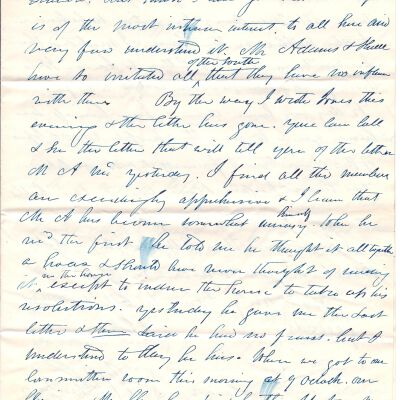 is of the most intense interest to all here and
very few understand it. Mr Adams & Slade
of the South
have so irritated all that they have no influence
with them By the way I wrote Jones this
evening & the letter has gone. You can call
& see the letter that will tell you of the letter
Mr A recd yesterday. I find all the members
are exceedingly apprehensive & I learn that
Mr A has become somewhat uneasy himself When he
recd the first he told me he thought it all together
a hoax & should have never thought of
in the house
it, except to induce the house to take up his
resolutions. Yesterday he gave me the last
letter & then said he had no fears. but I
understand to day he has. When we got to our
committee room this morning at 9 oclock our